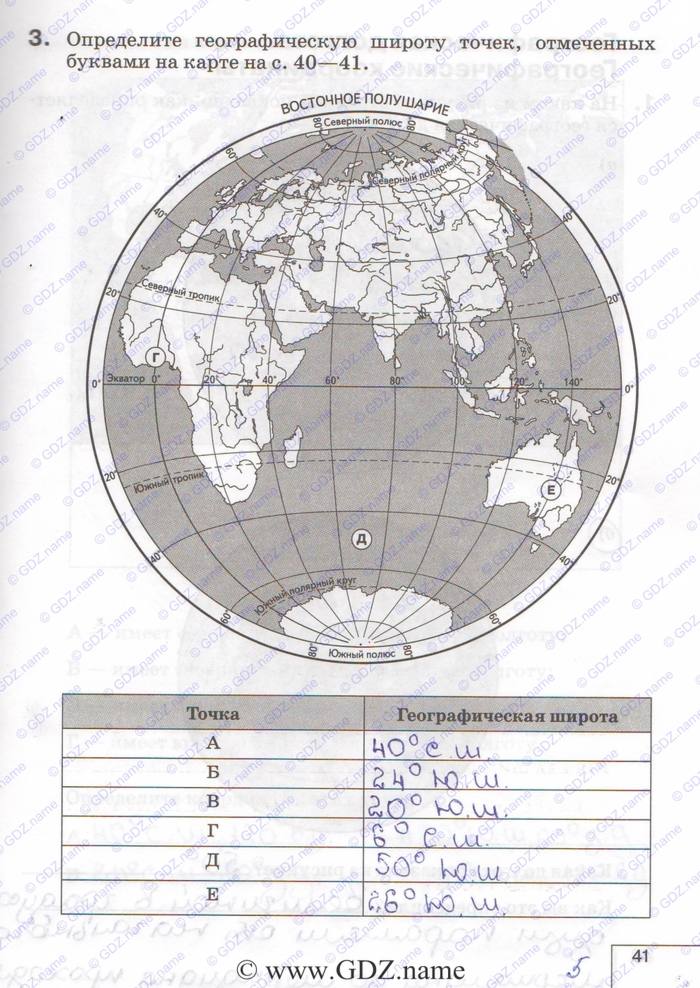 3. Определите географическую широту точек, отмеченных
буквами на карте на с. 40—41.
ВОСТОЧНОЕ ПОЛУШАРИЕ
Северный полюс
80° 80°
60°
Северный полярный
40° 40°
20° Северный тропик 20°
Г
0° Экватор 0° 20° 40° 60° 80° 100° 120° 140° 0°
20° Южный тропик 20°
Е
Д
40° 40°
Южный полярный круг
60° 60°
80° 80°
Южный полюс
Точка Географическая широта
А 40° с.ш.
Б 24° ю.ш.
В 20° ю.ш.
Г 6° с.ш.
Д 50° ю.ш
Е 26° ю.ш.
41
5
© www.GDZ.name